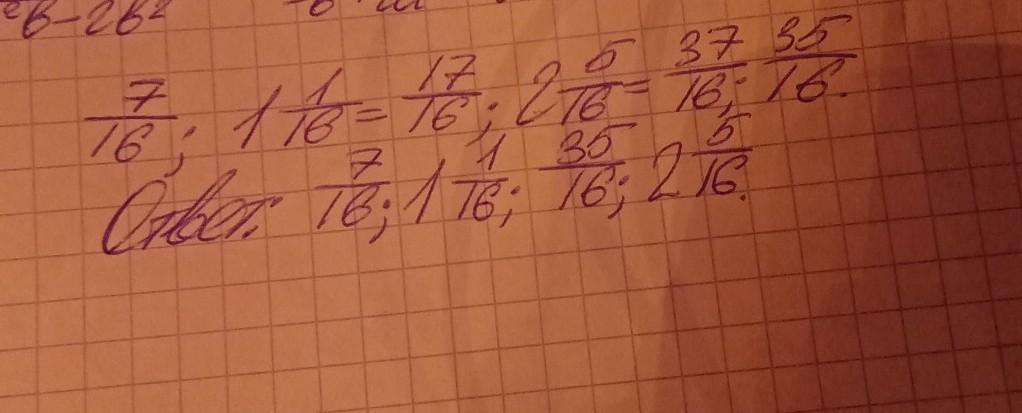 7/16; 1 1/16 = 17/16; 2 5/16 = 37/16; 35/16.
Ответ: 7/16; 1 1/16; 35/16; 2 5/16.